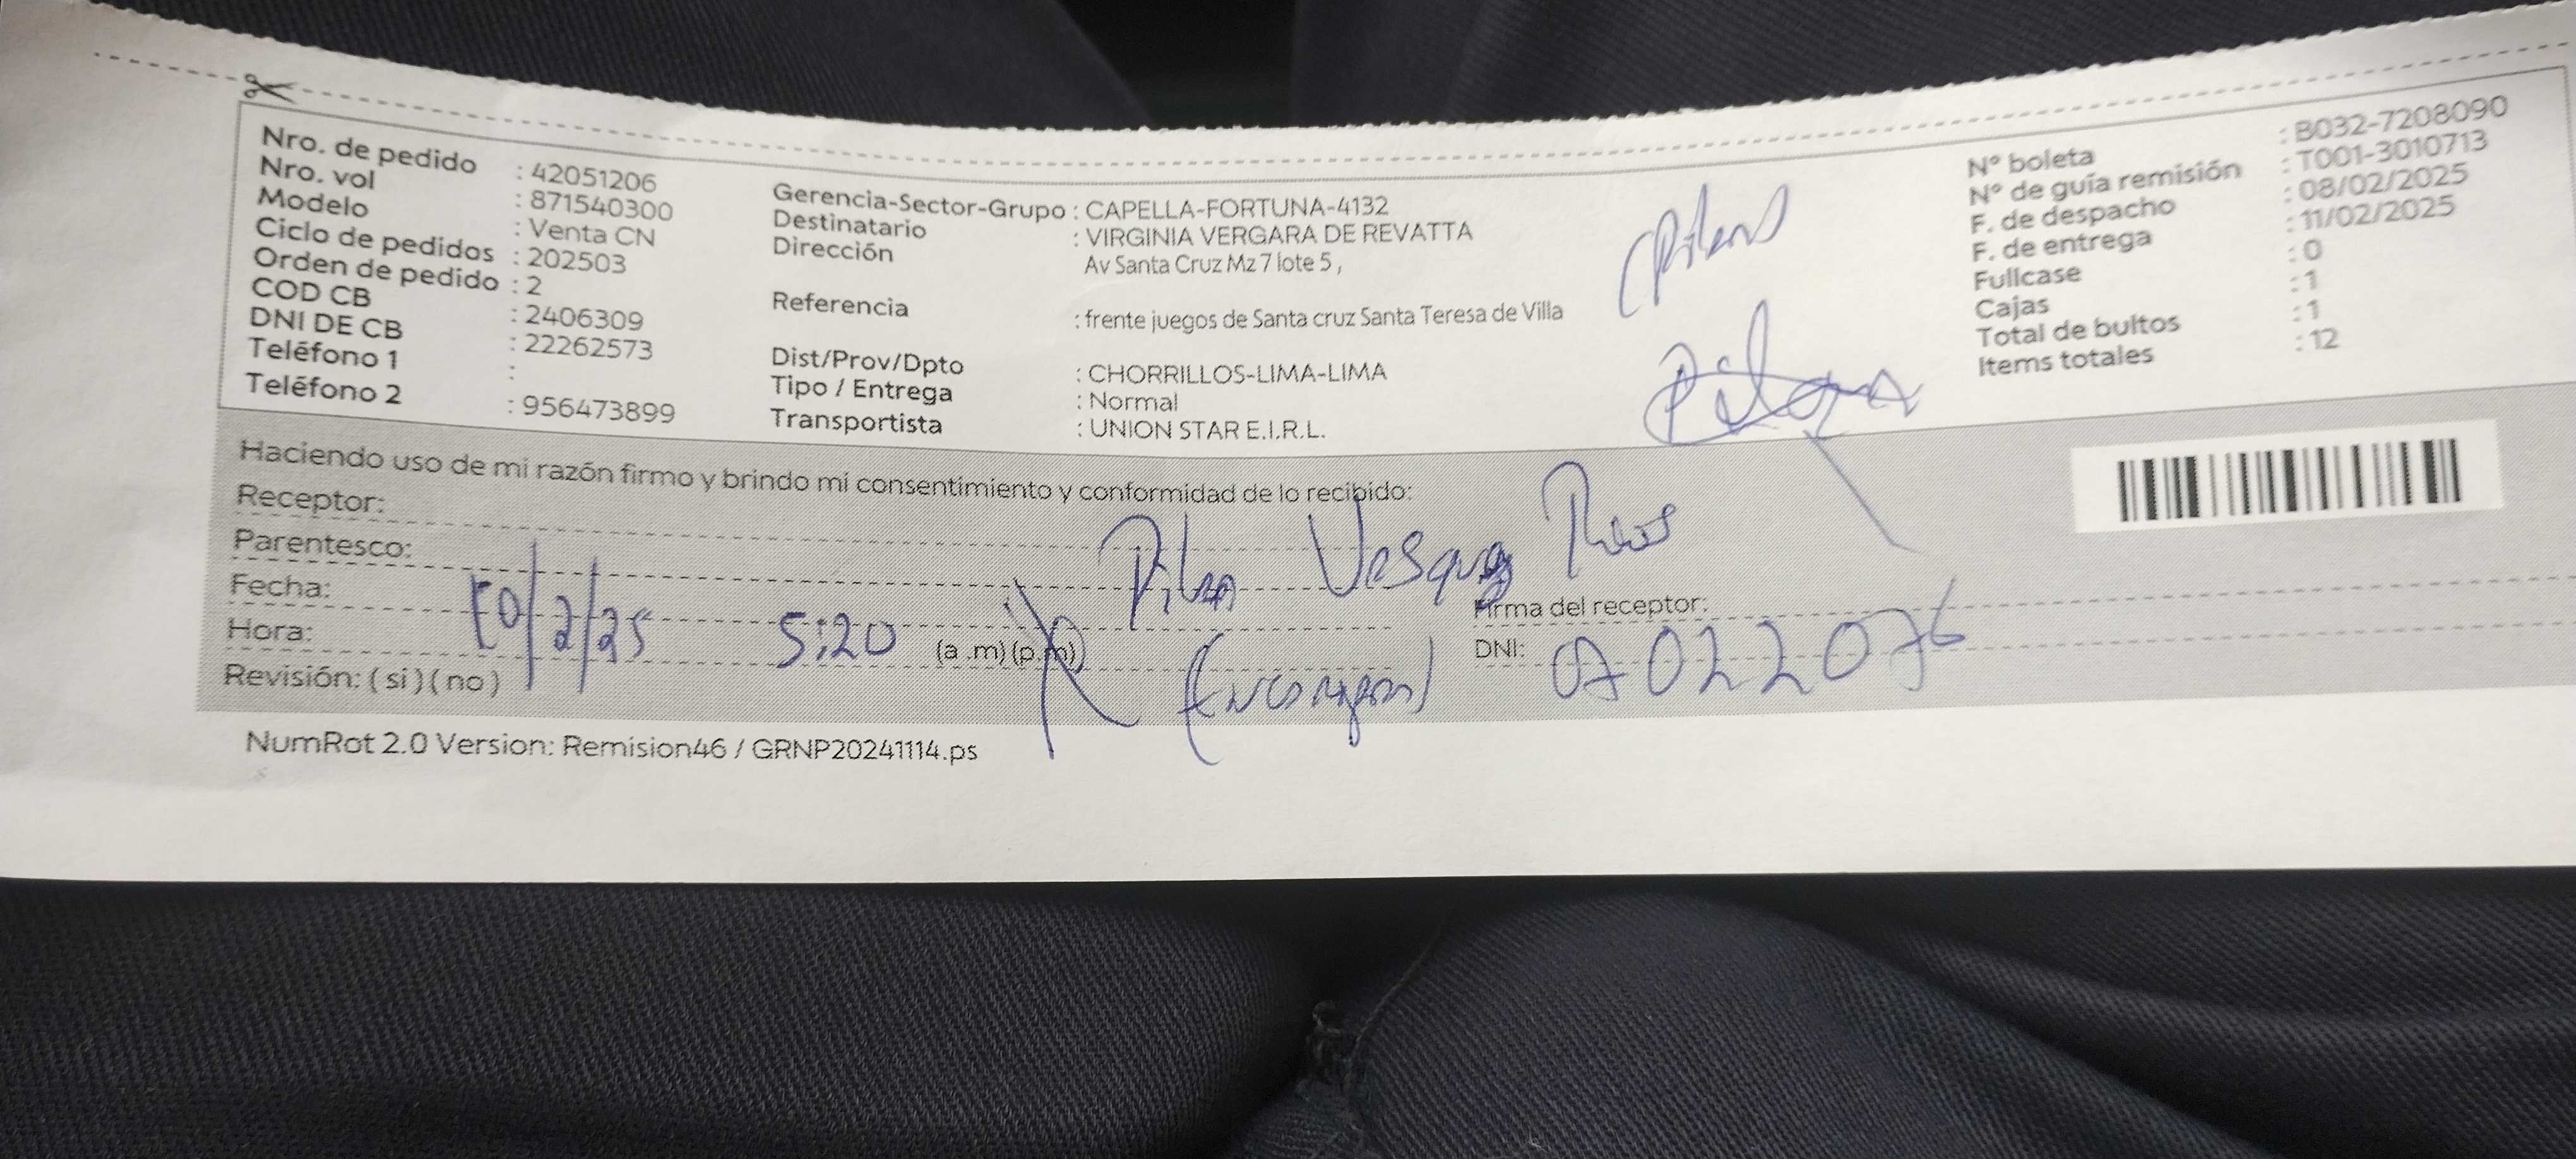 Nro. de pedido : 42051206
Nro. vol : 871540300
Modelo : Venta CN
Ciclo de pedidos : 202503
Orden de pedido : 2
COD CB : 2406309
DNI DE CB : 22262573
Teléfono 1 :
Teléfono 2 : 956473899
Gerencia-Sector-Grupo : CAPELLA-FORTUNA-4132
Destinatario : VIRGINIA VERGARA DE REVATTA
Dirección Av Santa Cruz Mz 7 lote 5 ,
Referencia : frente juegos de Santa cruz Santa Teresa de Villa
Dist/Prov/Dpto : CHORRILLOS-LIMA-LIMA
Tipo / Entrega : Normal
Transportista : UNION STAR E.I.R.L.
Nº boleta : B032-7208090
Nº de guía remisión : T001-3010713
F. de despacho : 08/02/2025
F. de entrega : 11/02/2025
Fullcase : 0
Cajas : 1
Total de bultos : 1
Items totales : 12
Haciendo uso de mi razón firmo y brindo mi consentimiento y conformidad de lo recibido:
Receptor:
Parentesco: Pilar
Fecha: 10/2/25
Hora: 5:20 (a .m) (p.m)
Revisión: ( si ) ( no )
Firma del receptor:
DNI: 07022076
NumRot 2.0 Version: Remision46 / GRNP20241114.ps